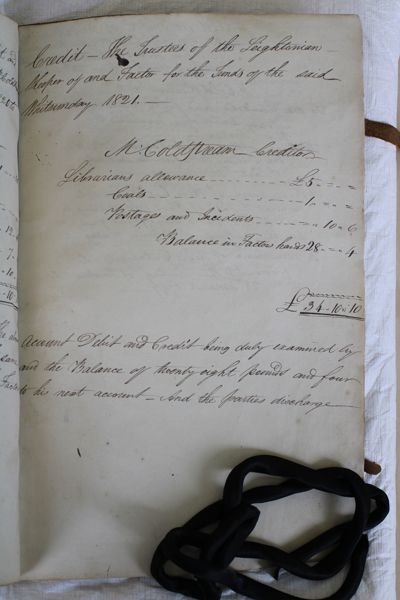 Credit — The Trustees of the Leightonian
Keeper of and Factor for the funds of the said
Whitsunday 1821. —
Mr. Coldstream Creditor
Librarians allowance £5 " — "
Coals 1 " — "
Postages and Incidents " 10 " 6
Balance in Factors hands 28 " — " 4
£34 " 10 " 10
Account Debit and Credit being duly examined by
and the Balance of twenty eight pounds and four
to his next account — And the parties discharge